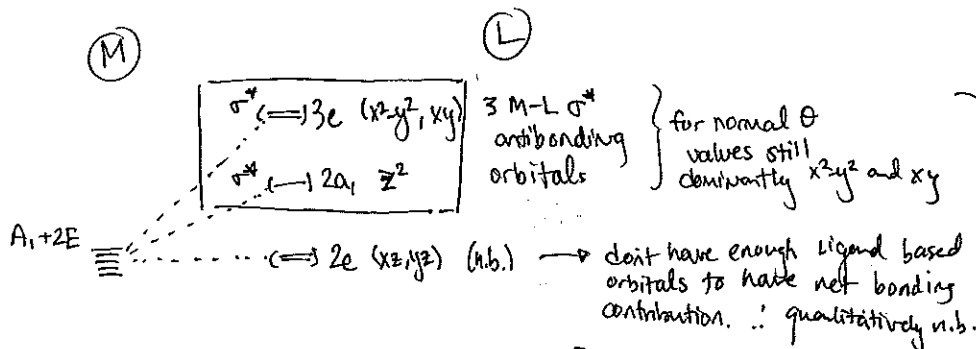 M L
σ* 3e (x²-y², xy) 3 M-L σ*
antibonding
orbitals
for normal θ
values still
dominantly x²-y² and xy
σ* 2a₁ z²
A₁+2E
2e (xz,yz) (n.b.) → don't have enough ligand based
orbitals to have net bonding
contribution. ∴ qualitatively n.b.